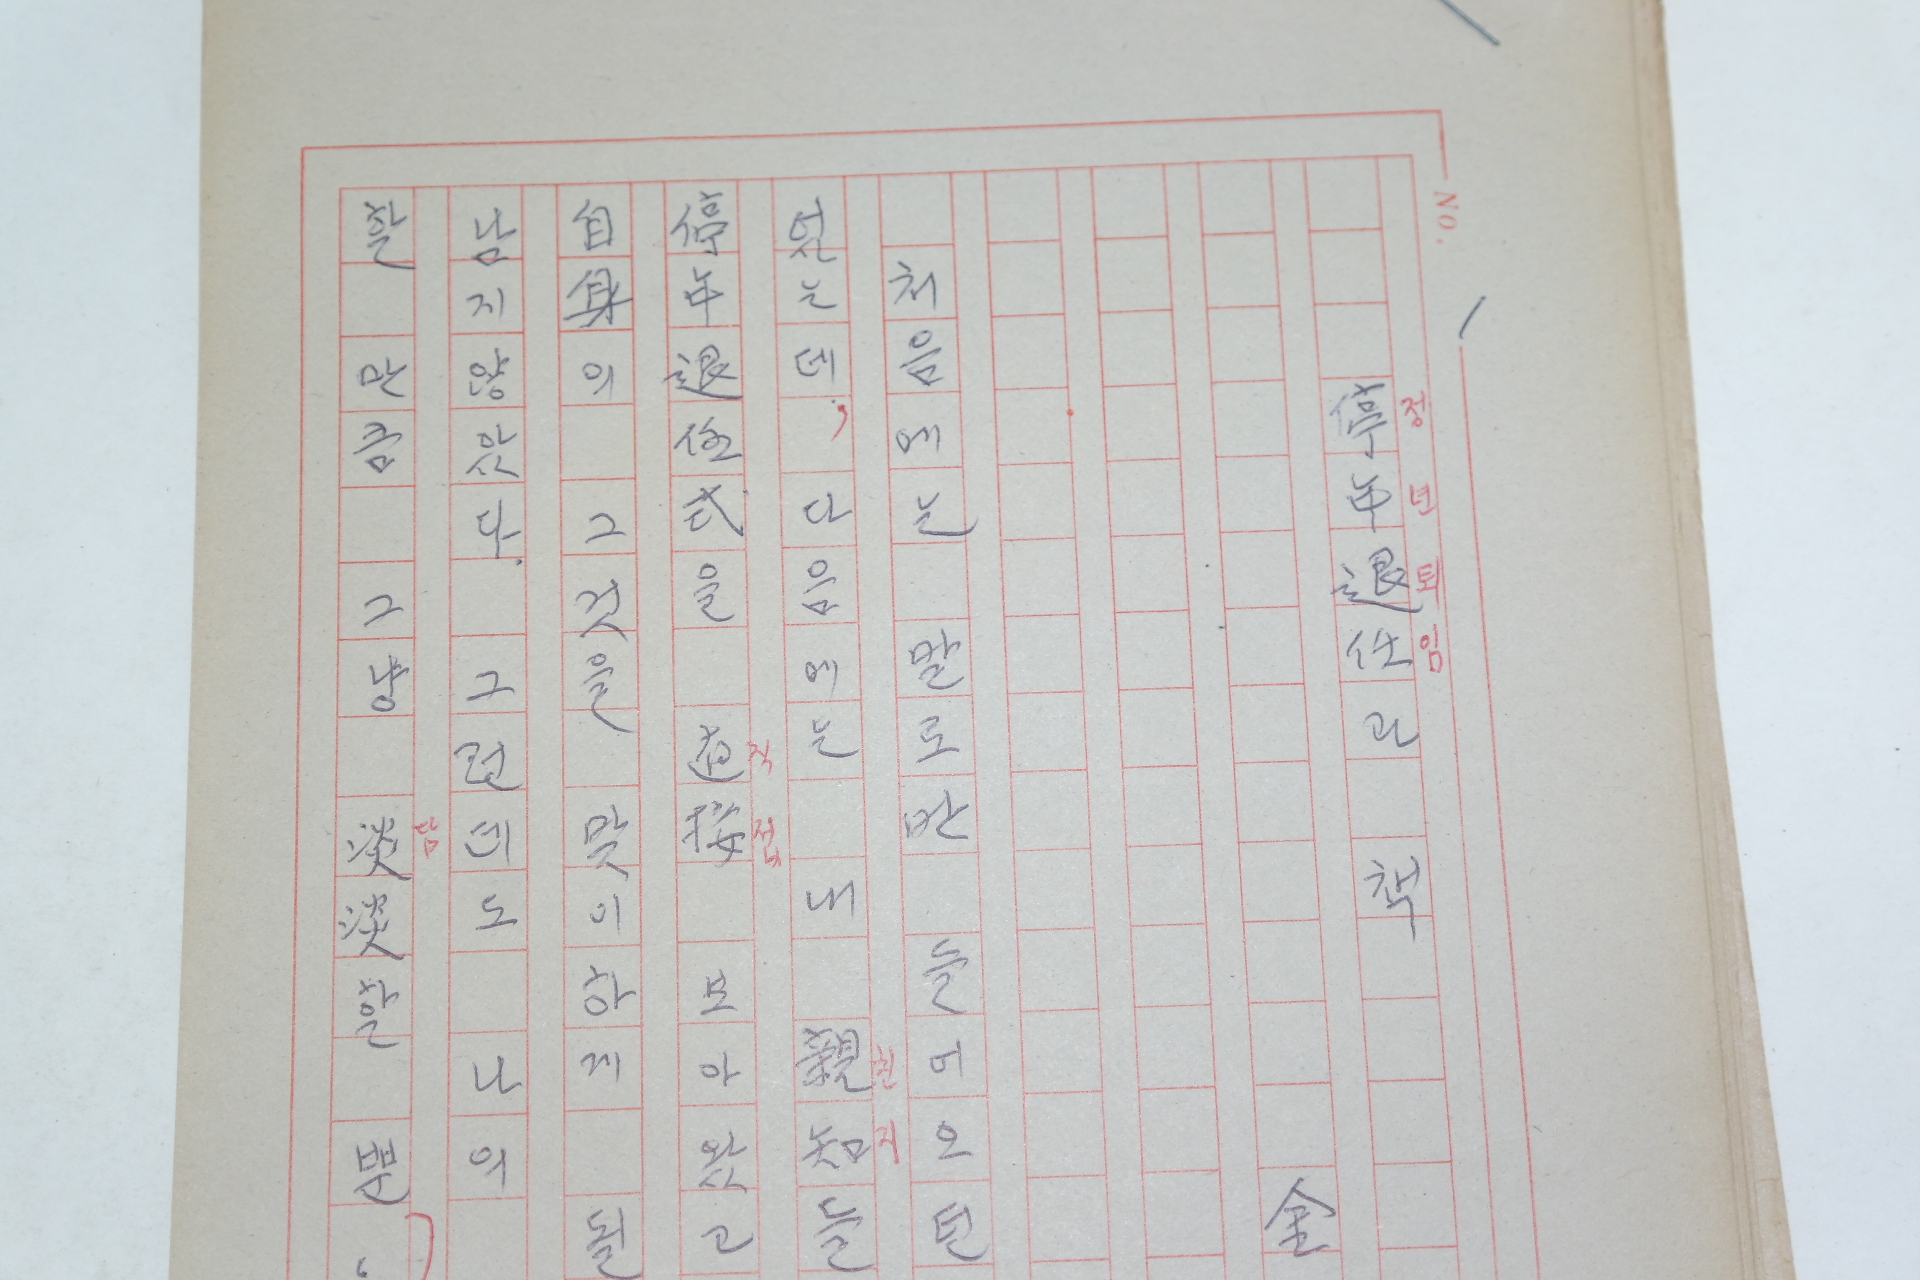 No. 1
停年退任과 책
정년퇴임
金
처음에는 말로만 들어오던
었는데, 다음에는 내 親知들
친지
停年退任式을 直接 보아왔고
직접
自身의 그것을 맞이하게 될
남지 않았다. 그런데도 나의
할 만큼 그냥 淡淡할 뿐
담